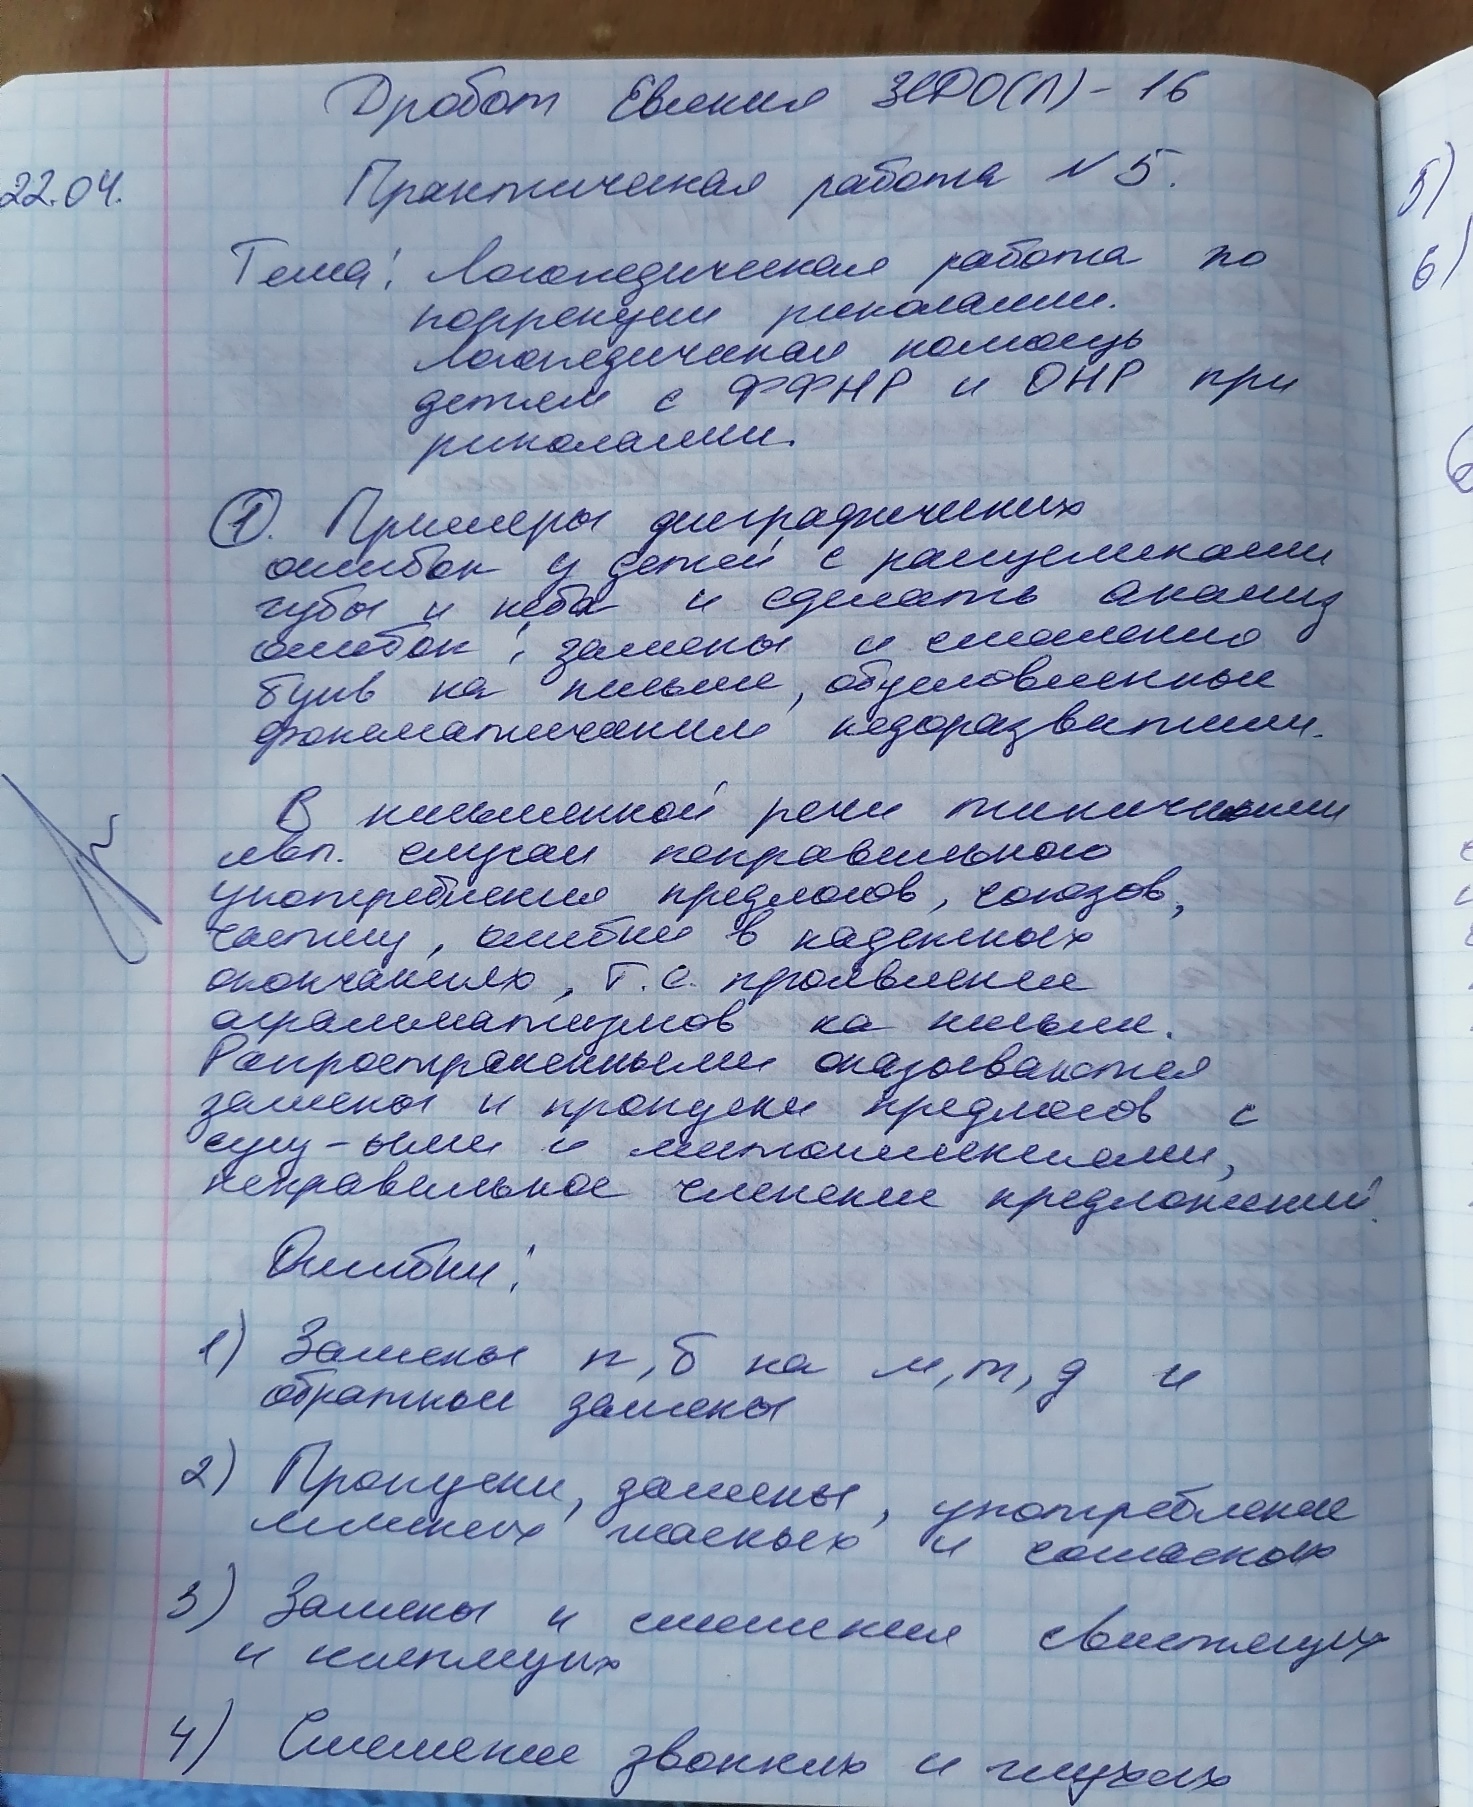 Дробот Евгения ЗСДО(Л) - 16
22.04. Практическая работа №5.
Тема: Логопедическая работа по
коррекции ринолалии.
Логопедическая помощь
детям с ФФНР и ОНР при
ринолалии.
1. Примеры дисграфических
ошибок у детей с расщелинами
губы и нёба и сделать анализ
ошибок: замены и смешение
букв на письме, обусловленные
фонематическим недоразвитием.
В письменной речи типичными
явл. случаи неправильного
употребления предлогов, союзов,
частиц, ошибки в падежных
окончаниях, т.е. проявление
аграмматизмов на письме.
Распространенными оказываются
замены и пропуски предлогов с
сущ-ыми и местоимениями,
неправильное членение предложений.
Ошибки:
1) Замены п, б на м, т, д и
обратные замены
2) Пропуски, замены, употребление
лишних гласных и согласных
3) Замены и смешения свистящих
и шипящих
4) Смешение звонких и глухих
5)
6)